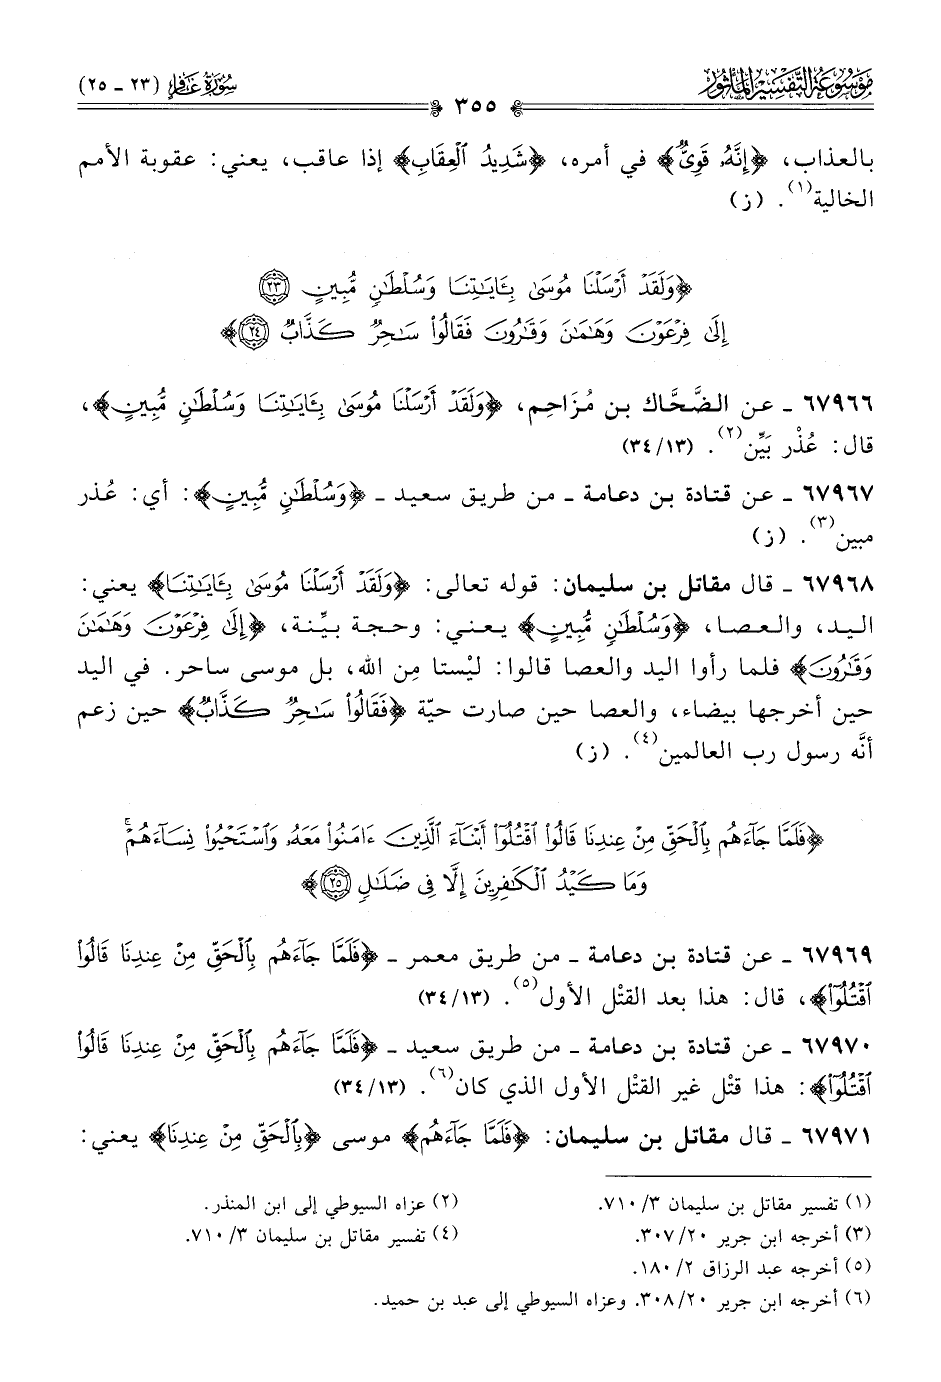 مَوْسُوعَةُ التَّفْسِيرِ المَأْثُورِ
٣٥٥
سُورَةُ غَافِرٍ (٢٣ ـ ٢٥)
بالعذاب، ﴿إِنَّهُۥ قَوِىٌّ﴾ في أمره، ﴿شَدِيدُ ٱلْعِقَابِ﴾ إذا عاقب، يعني: عقوبة الأمم
الخالية(١). (ز)
﴿وَلَقَدْ أَرْسَلْنَا مُوسَىٰ بِـَٔايَـٰتِنَا وَسُلْطَـٰنٍ مُّبِينٍ ٢٣
إِلَىٰ فِرْعَوْنَ وَهَـٰمَـٰنَ وَقَـٰرُونَ فَقَالُوا۟ سَـٰحِرٌ كَذَّابٌ ٢٤﴾
٦٧٩٦٦ ـ عن الضَّحَّاك بن مُزَاحِم، ﴿وَلَقَدْ أَرْسَلْنَا مُوسَىٰ بِـَٔايَـٰتِنَا وَسُلْطَـٰنٍ مُّبِينٍ﴾،
قال: عُذْر بَيِّن(٢). (٣٤/١٣)
٦٧٩٦٧ ـ عن قتادة بن دعامة ـ من طريق سعيد ـ ﴿وَسُلْطَـٰنٍ مُّبِينٍ﴾: أي: عُذر
مبين(٣). (ز)
٦٧٩٦٨ ـ قال مقاتل بن سليمان: قوله تعالى: ﴿وَلَقَدْ أَرْسَلْنَا مُوسَىٰ بِـَٔايَـٰتِنَا﴾ يعني:
اليد، والعصا، ﴿وَسُلْطَـٰنٍ مُّبِينٍ﴾ يعني: وحجة بيِّنة، ﴿إِلَىٰ فِرْعَوْنَ وَهَـٰمَـٰنَ
وَقَـٰرُونَ﴾ فلما رأوا اليد والعصا قالوا: ليْستا مِن الله، بل موسى ساحر. في اليد
حين أخرجها بيضاء، والعصا حين صارت حيّة ﴿فَقَالُوا۟ سَـٰحِرٌ كَذَّابٌ﴾ حين زعم
أنَّه رسول رب العالمين(٤). (ز)
﴿فَلَمَّا جَآءَهُم بِٱلْحَقِّ مِنْ عِندِنَا قَالُوا۟ ٱقْتُلُوٓا۟ أَبْنَآءَ ٱلَّذِينَ ءَامَنُوا۟ مَعَهُۥ وَٱسْتَحْيُوا۟ نِسَآءَهُمْ ۚ
وَمَا كَيْدُ ٱلْكَـٰفِرِينَ إِلَّا فِى ضَلَـٰلٍ ٢٥﴾
٦٧٩٦٩ ـ عن قتادة بن دعامة ـ من طريق معمر ـ ﴿فَلَمَّا جَآءَهُم بِٱلْحَقِّ مِنْ عِندِنَا قَالُوا۟
ٱقْتُلُوٓا۟﴾، قال: هذا بعد القتْل الأول(٥). (٣٤/١٣)
٦٧٩٧٠ ـ عن قتادة بن دعامة ـ من طريق سعيد ـ ﴿فَلَمَّا جَآءَهُم بِٱلْحَقِّ مِنْ عِندِنَا قَالُوا۟
ٱقْتُلُوٓا۟﴾: هذا قتْل غير القتْل الأول الذي كان(٦). (٣٤/١٣)
٦٧٩٧١ ـ قال مقاتل بن سليمان: ﴿فَلَمَّا جَآءَهُم﴾ موسى ﴿بِٱلْحَقِّ مِنْ عِندِنَا﴾ يعني:
(١) تفسير مقاتل بن سليمان ٣/ ٧١٠.
(٢) عزاه السيوطي إلى ابن المنذر.
(٣) أخرجه ابن جرير ٢٠/ ٣٠٧.
(٤) تفسير مقاتل بن سليمان ٣/ ٧١٠.
(٥) أخرجه عبد الرزاق ٢/ ١٨٠.
(٦) أخرجه ابن جرير ٢٠/ ٣٠٨. وعزاه السيوطي إلى عبد بن حميد.